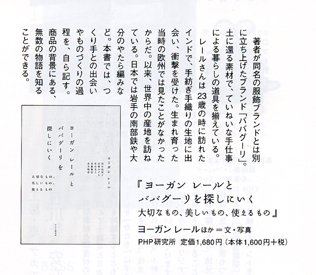 著者が同名の服飾ブランドとは別
に立ち上げたブランド「ババグーリ」。
土に還る素材で、ていねいな手仕事
による暮らしの道具を揃えている。
レールさんは23歳の時に訪れた
インドで、手紡ぎ手織りの生地に出
会い、衝撃を受けた。生まれ育った
当時の欧州では見たことがなかった
からだ。以来、世界中の産地を訪ね
ている。日本では岩手の南部鉄や大
分のやたら編みな
ど。本書では、つ
くり手との出会い
やものづくりの過
程を、自ら記す。
商品の背景にある、
無数の物語を知る
ことができる。
ヨーガン レールと
ババグーリを
探しにいく
『ヨーガン レールと
ババグーリを探しにいく
大切なもの、美しいもの、使えるもの』
ヨーガン レールほか=文・写真
PHP研究所 定価1,680円(本体1,600円+税)